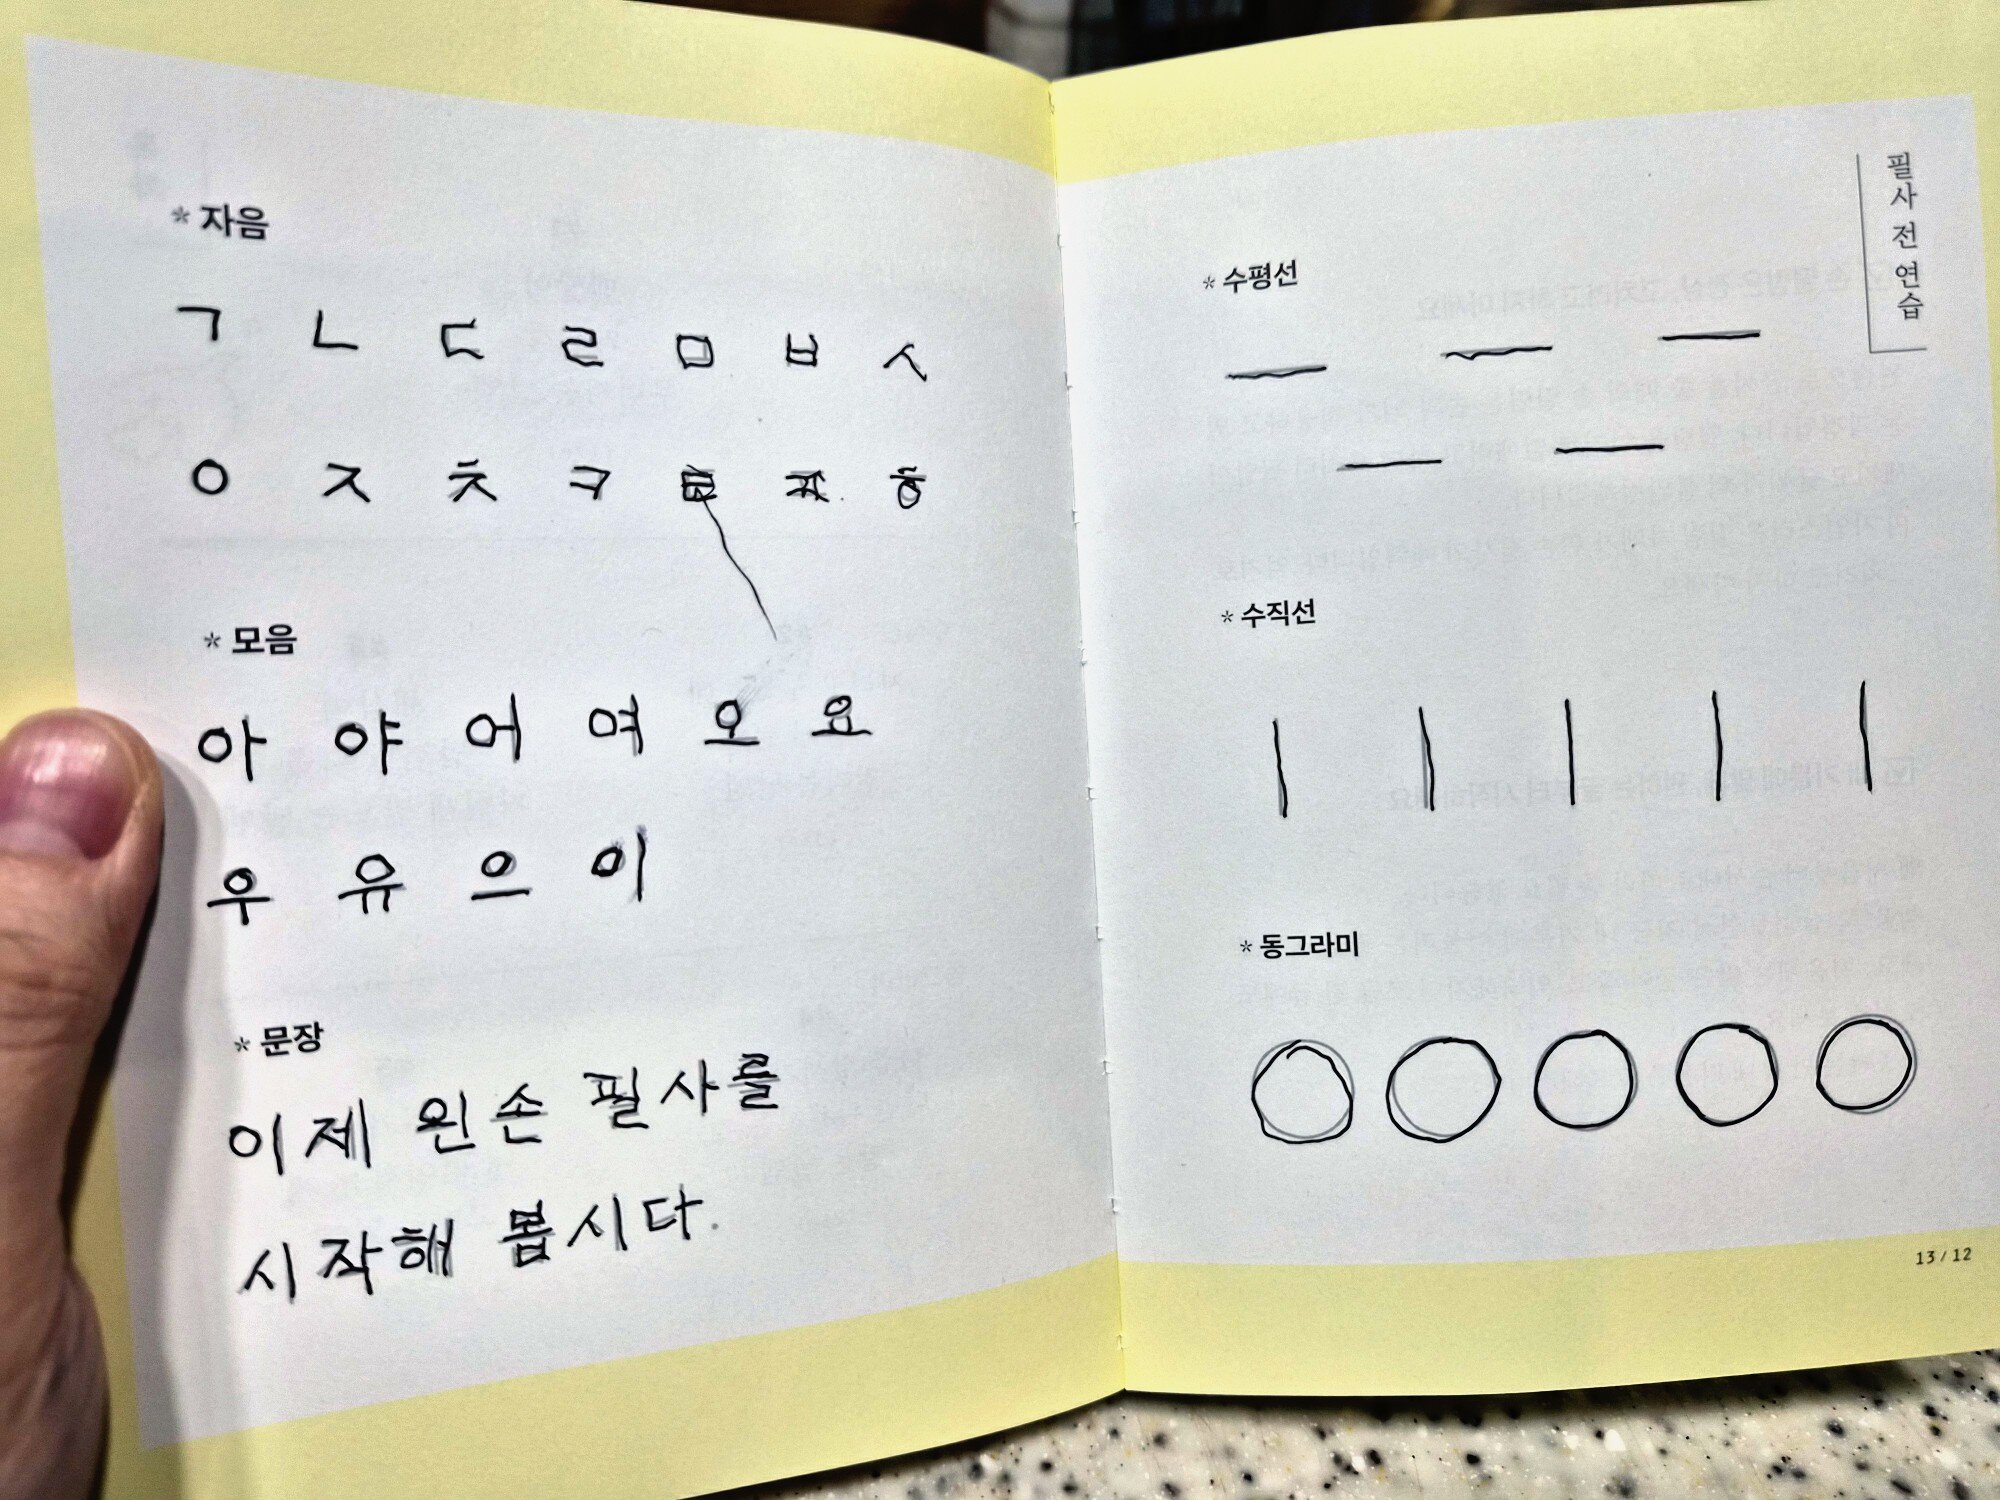 * 자음
ㄱ ㄴ ㄷ ㄹ ㅁ ㅂ ㅅ
ㅇ ㅈ ㅊ ㅋ ㅌ ㅍ ㅎ
* 모음
아 야 어 여 오 요
우 유 으 이
* 문장
이제 왼손 필사를
시작해 봅시다.
필사 전 연습
* 수평선
* 수직선
* 동그라미
13 / 12